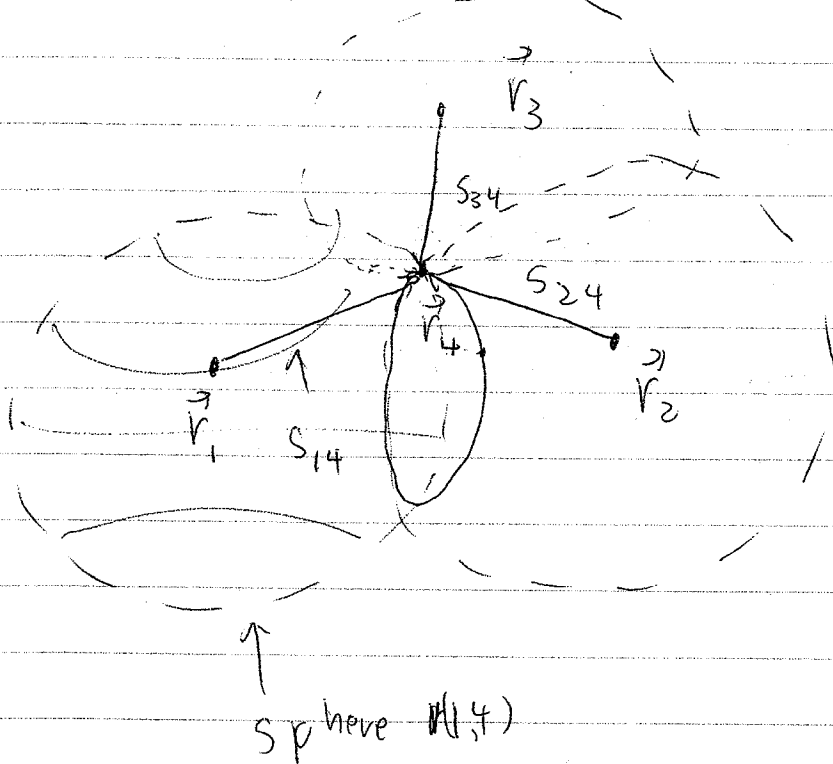 r⃗₃
s₃₄
s₂₄
r⃗₄
r⃗₂
r⃗₁
s₁₄
sphere (1,4)